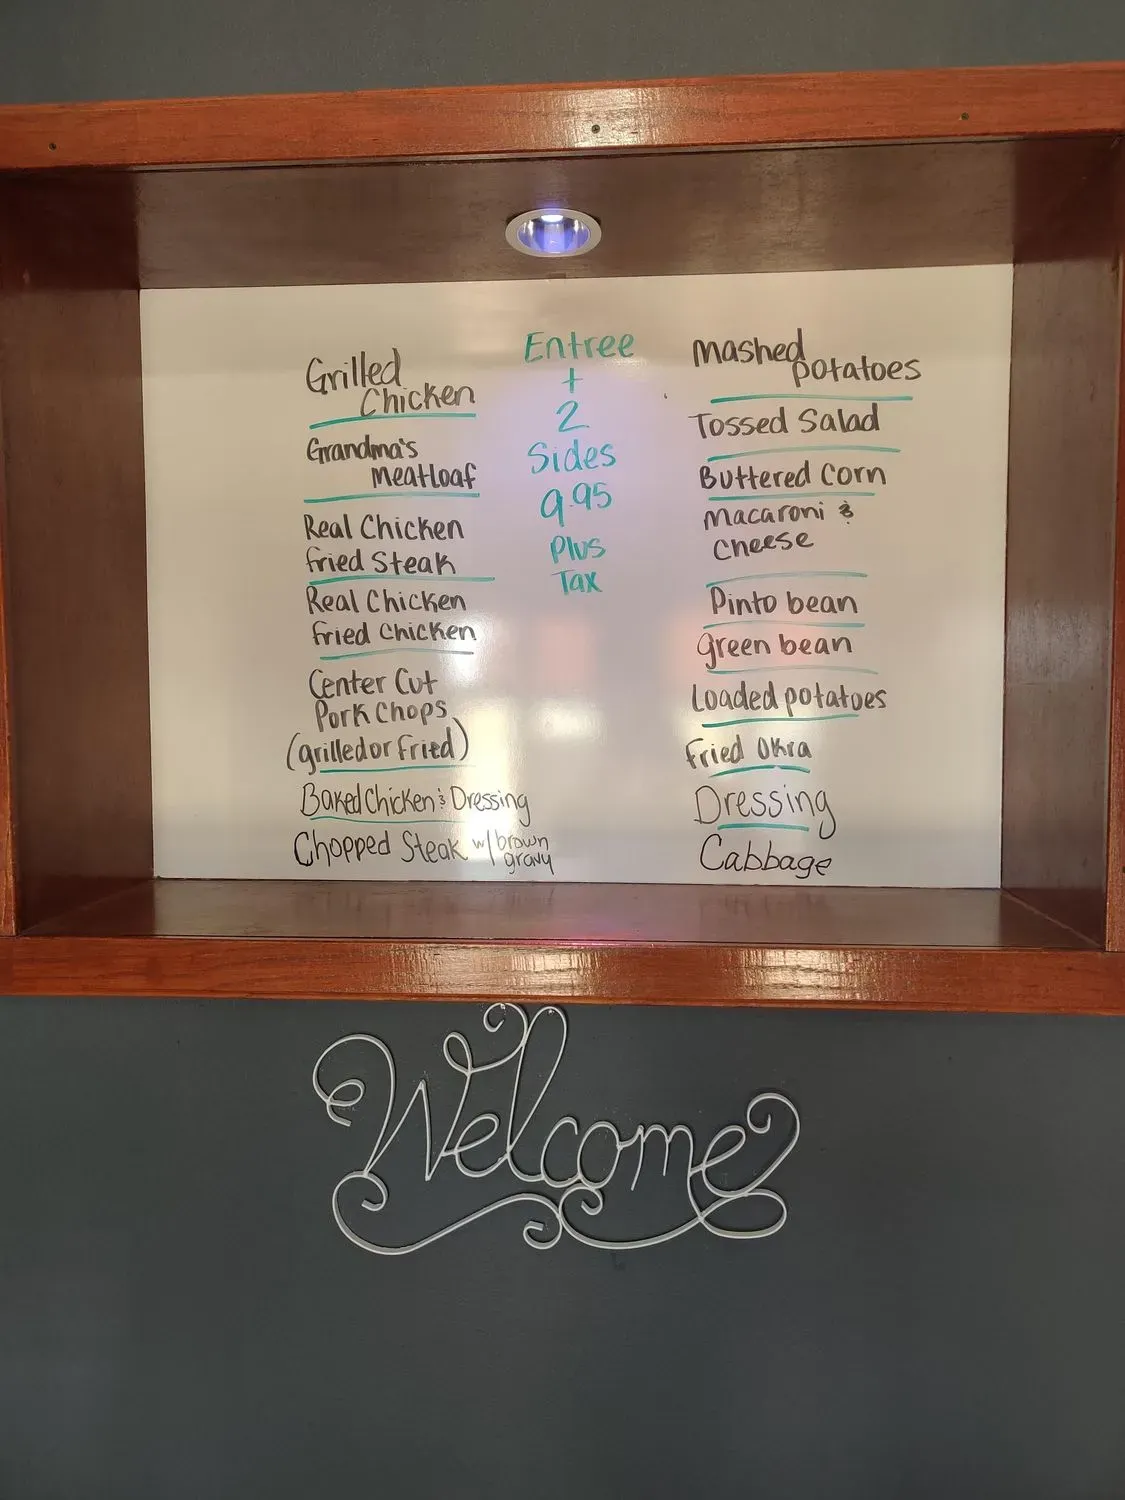 Grilled
Chicken
Grandma's
Meatloaf
Real Chicken
fried Steak
Real Chicken
fried chicken
Center Cut
Pork Chops
(grilled or fried)
Baked Chicken & Dressing
Chopped Steak w/ brown
gravy
Entree
+
2
Sides
9.95
Plus
Tax
Mashed
potatoes
Tossed Salad
Buttered Corn
Macaroni &
Cheese
Pinto bean
green bean
Loaded potatoes
Fried Okra
Dressing
Cabbage
Welcome